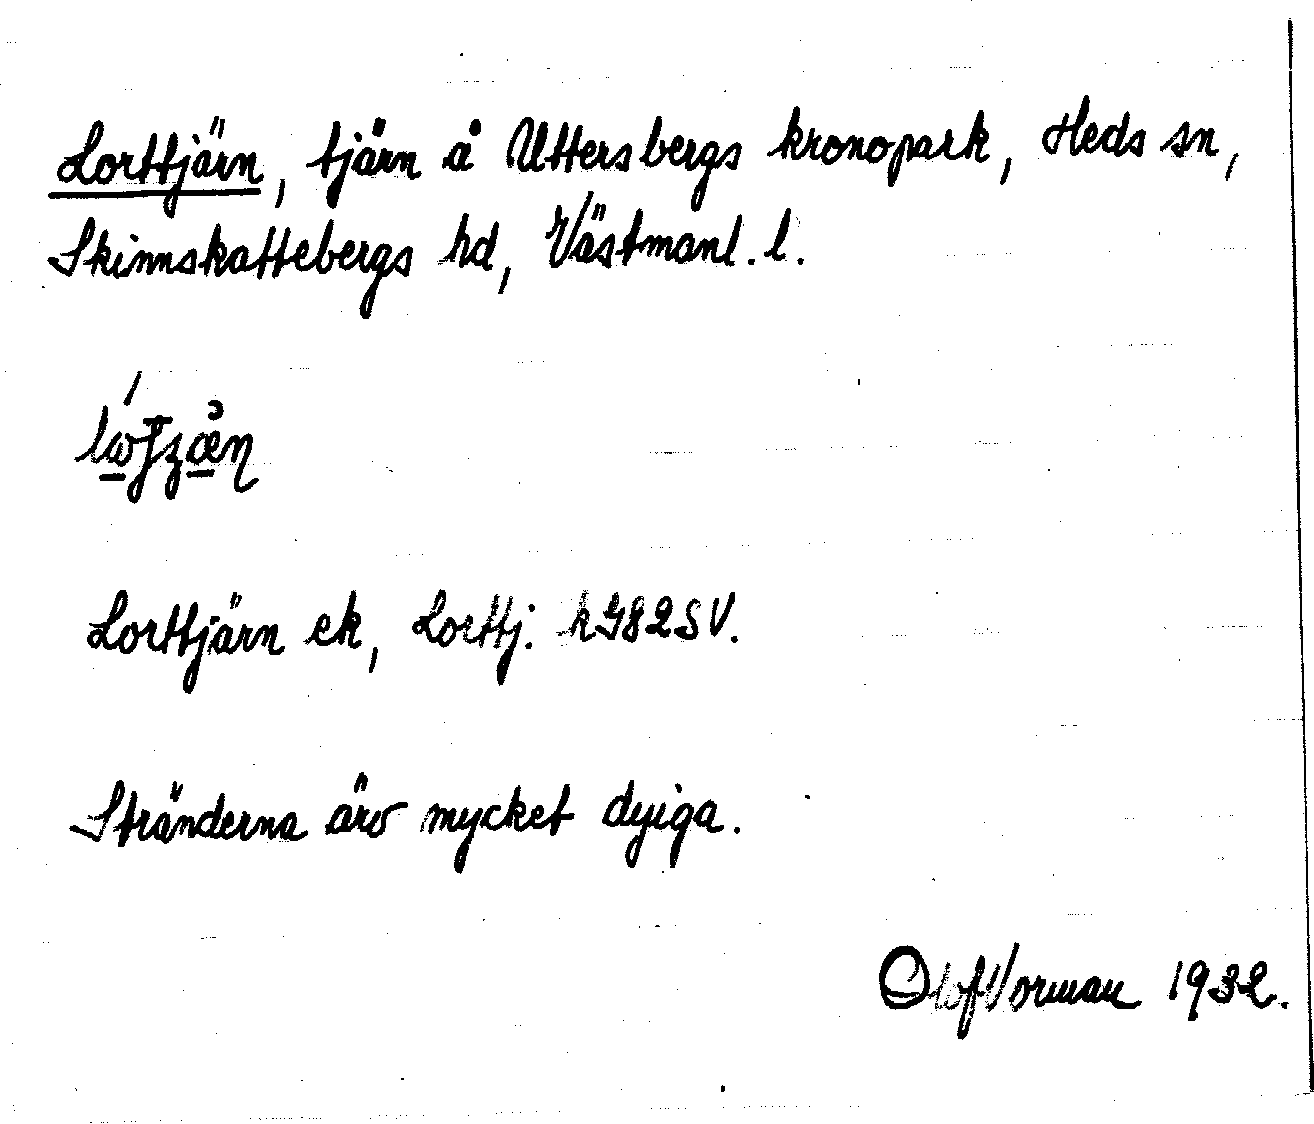 Lorttjärn, tjärn å Uttersbergs kronopark, Heds sn,
Skinnskattebergs hd, Västmanl. l.
Lorttjärn ek, Lorttj. hG82SV.
Stränderna äro mycket dyiga.
Olof Norman 1932.